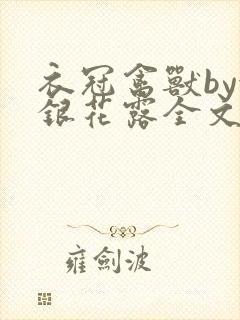 衣冠禽獸by
銀花露全文
雍劍波